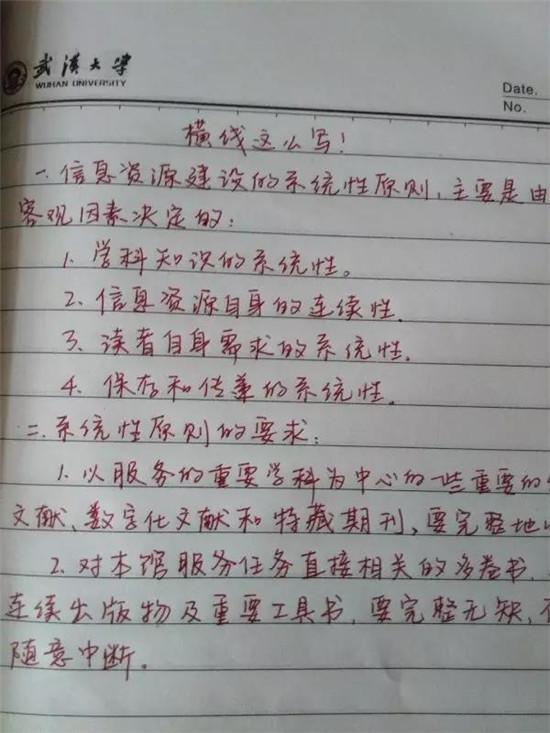 武汉大学
WUHAN UNIVERSITY
Date.
No.
横线这么写！
一.信息资源建设的系统性原则，主要是由
客观因素决定的：
1. 学科知识的系统性。
2. 信息资源自身的连续性.
3. 读者自身需求的系统性.
4. 保存和传递的系统性.
二.系统性原则的要求：
1. 以服务的重要学科为中心的一些重要的
文献、数字化文献和特藏期刊，要完整地
2. 对本馆服务任务直接相关的多卷书.
连续出版物及重要工具书，要完整无缺，不
随意中断。